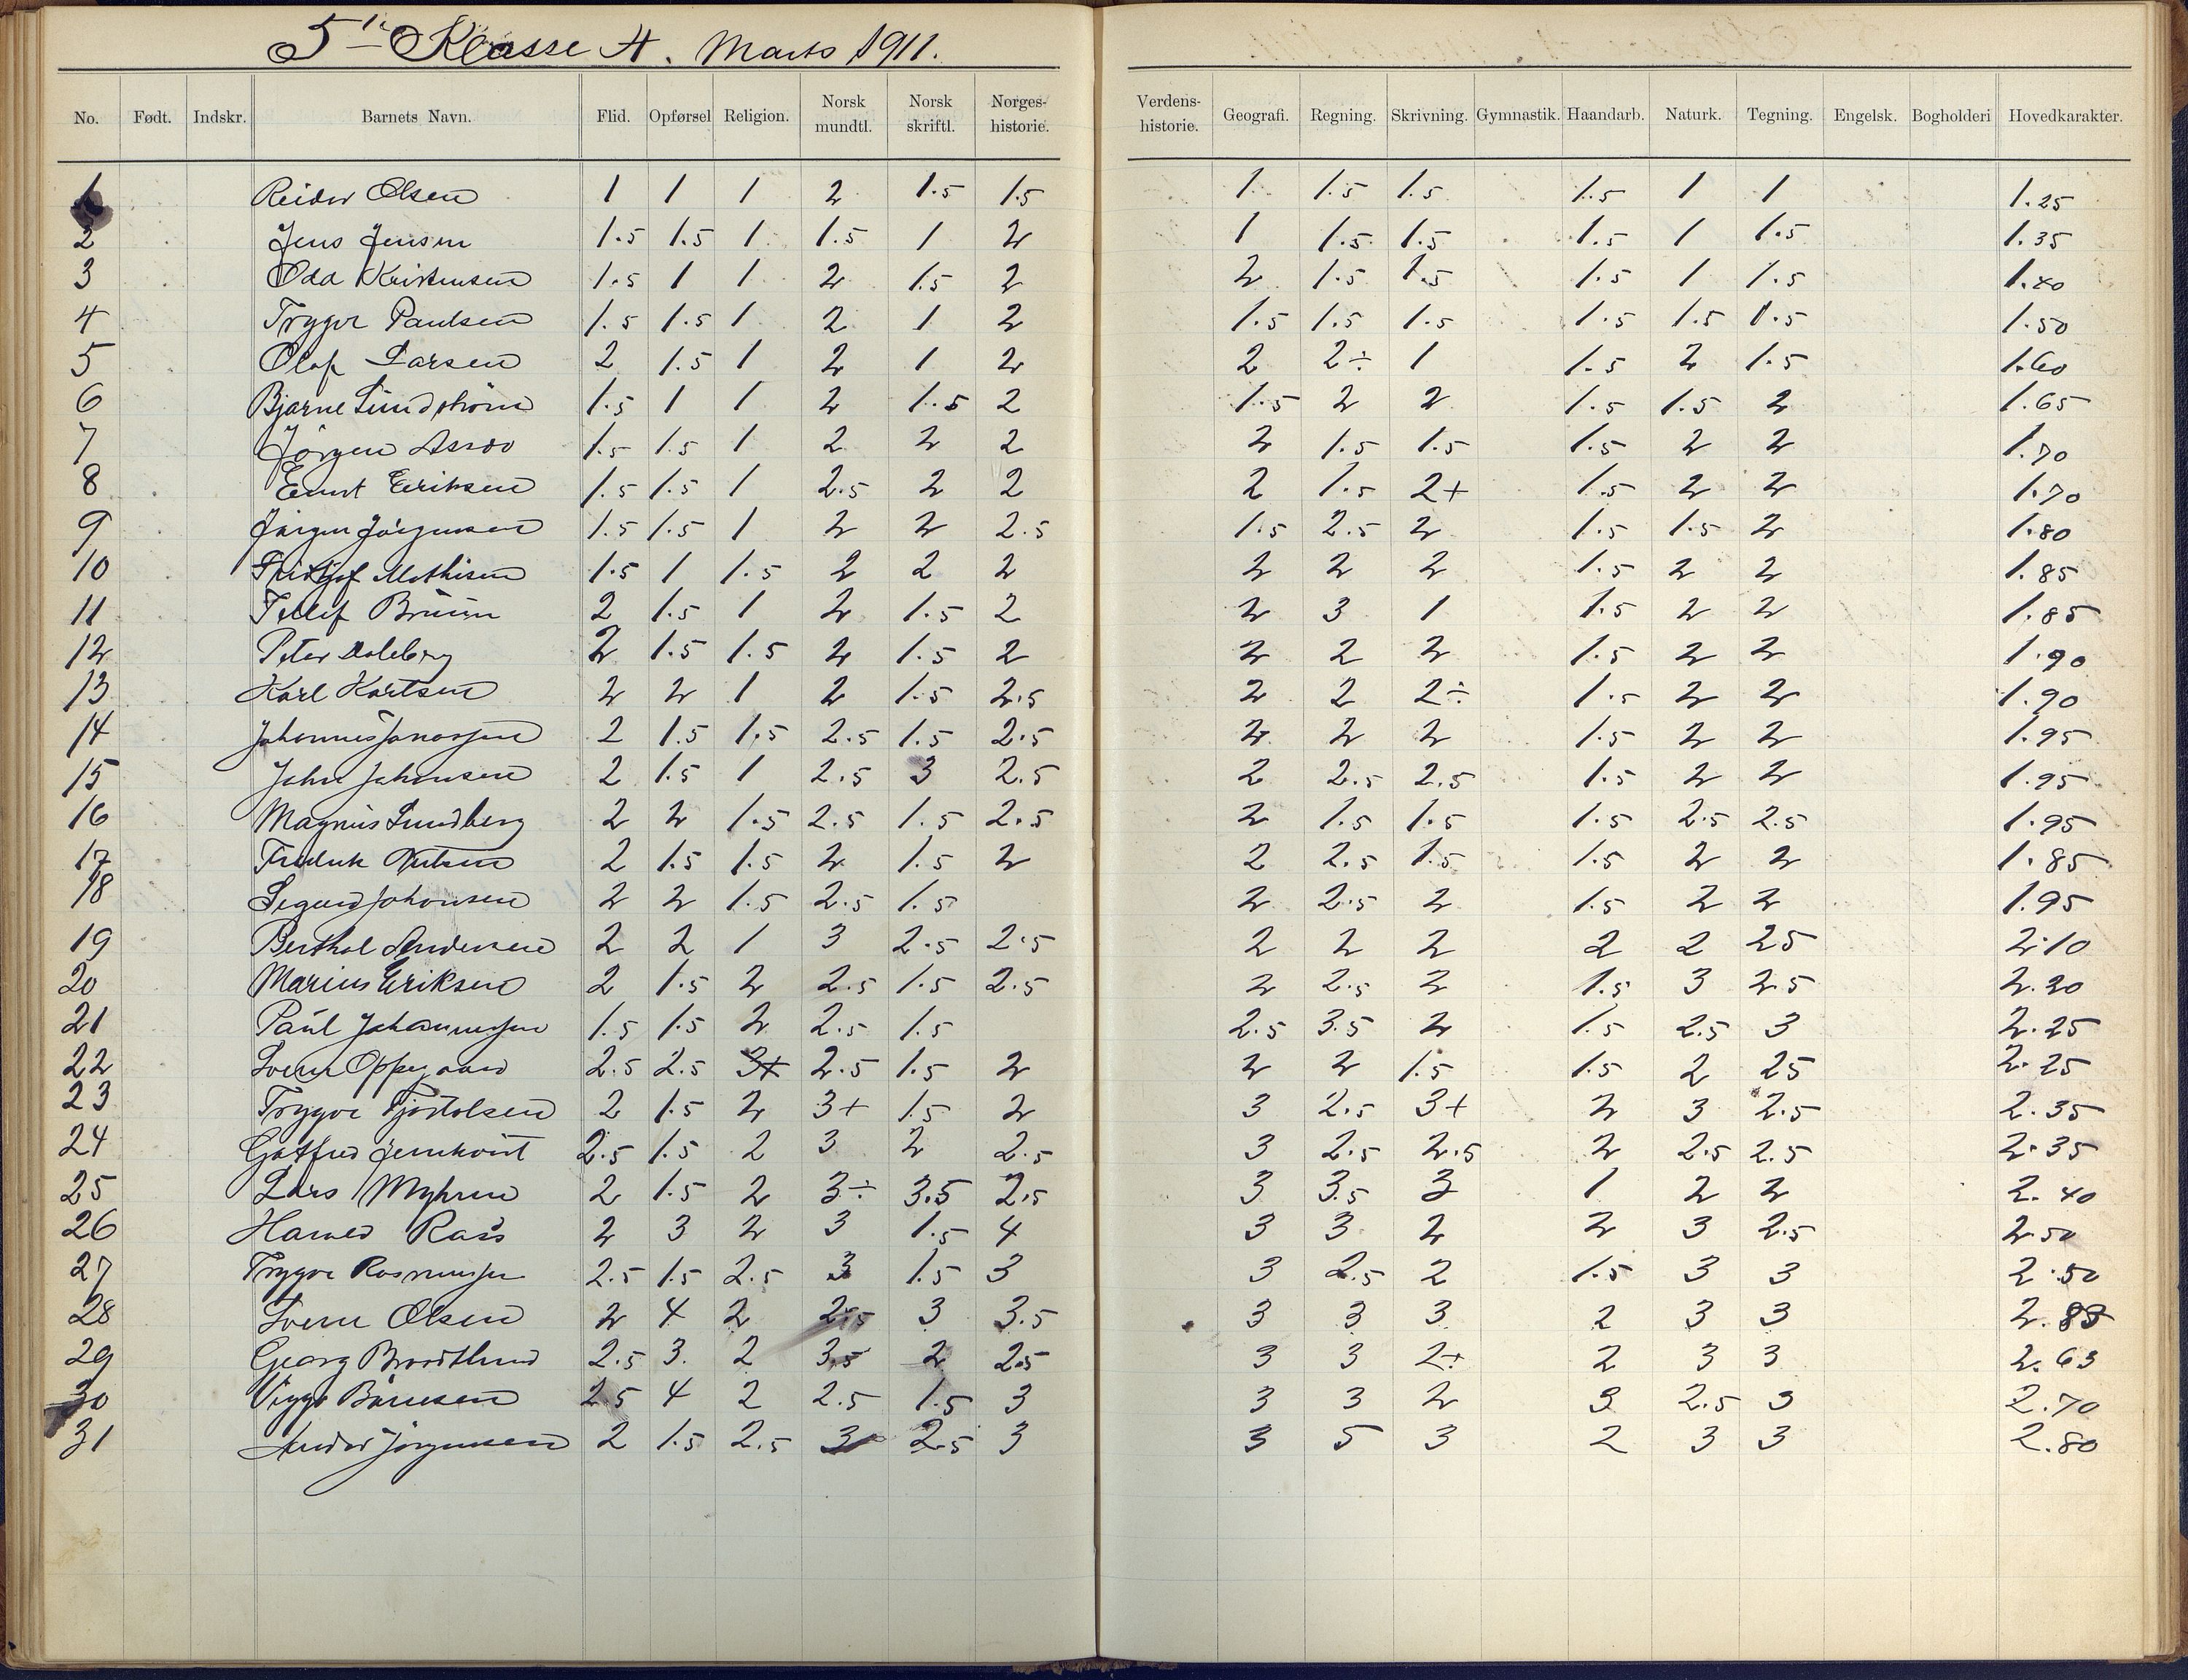 5te Klasse A. Marts 1911.
No. Født. Indskr. Barnets Navn. Flid. Opførsel Religion. Norsk mundtl. Norsk skriftl. Norges-historie. Verdens-historie. Geografi. Regning. Skrivning. Gymnastik. Haandarb. Naturk. Tegning. Engelsk. Bogholderi Hovedkarakter.
1 Reidar Olsen 1 1 1 2 1.5 1.5 1 1.5 1.5 1.5 1 1 1.25
2 Jens Jensen 1.5 1.5 1 1.5 1 2 1 1.5 1.5 1.5 1 1.5 1.35
3 Odd Kristensen 1.5 1 1 2 1.5 2 2 1.5 1.5 1.5 1 1.5 1.40
4 Trygve Paulsen 1.5 1.5 1 2 1 2 1.5 1.5 1.5 1.5 1.5 1.5 1.50
5 Olaf Larsen 2 1.5 1 2 1 2 2 2÷ 1 1.5 2 1.5 1.60
6 Bjarne Lundstrøm 1.5 1 1 2 1.5 2 1.5 2 2 1.5 1.5 2 1.65
7 Jörgen 1.5 1.5 1 2 2 2 2 1.5 1.5 1.5 2 2 1.70
8 Eriksen 1.5 1.5 1 2.5 2 2 2 1.5 2+ 1.5 2 2 1.70
9 Jörgen Jörgensen 1.5 1.5 1 2 2 2.5 1.5 2.5 2 1.5 1.5 2 1.80
10 Fridtjof Mathisen 1.5 1 1.5 2 2 2 2 2 2 1.5 2 2 1.85
11 Tellef Bruun 2 1.5 1 2 1.5 2 2 3 1 1.5 2 2 1.85
12 Peter Daleberg 2 1.5 1.5 2 1.5 2 2 2 2 1.5 2 2 1.90
13 Karl Karlsen 2 2 1 2 1.5 2.5 2 2 2÷ 1.5 2 2 1.90
14 Johannes Jonassen 2 1.5 1.5 2.5 1.5 2.5 2 2 2 1.5 2 2 1.95
15 John Johansen 2 1.5 1 2.5 3 2.5 2 2.5 2.5 1.5 2 2 1.95
16 Magnus Lundberg 2 2 1.5 2.5 1.5 2.5 2 1.5 1.5 1.5 2.5 2.5 1.95
17 Fredrik 2 1.5 1.5 2 1.5 2 2 2.5 1.5 1.5 2 2 1.85
18 Sigurd Johansen 2 2 1.5 2.5 1.5 2 2.5 2 1.5 2 2 1.95
19 Berthol Andersen 2 2 1 3 2.5 2.5 2 2 2 2 2 25 2.10
20 Marius Eriksen 2 1.5 2 2.5 1.5 2.5 2 2.5 2 1.5 3 2.5 2.20
21 Paul Johannessen 1.5 1.5 2 2.5 1.5 2.5 3.5 2 1.5 2.5 3 2.25
22 Sverre Oppegaard 2.5 2.5 3+ 2.5 1.5 2 2 2 1.5 1.5 2 25 2.25
23 Trygve Fjostolsen 2 1.5 2 3+ 1.5 2 3 2.5 3+ 2 3 2.5 2.35
24 Gotfred Jernkvist 2.5 1.5 2 3 2 2.5 3 2.5 2.5 2 2.5 2.5 2.35
25 Lars Myhren 2 1.5 2 3÷ 3.5 2.5 3 3.5 3 1 2 2 2.40
26 2 3 2 3 1.5 4 3 3 2 2 3 2.5 2.50
27 Trygve Rasmussen 2.5 1.5 2.5 3 1.5 3 3 2.5 2 1.5 3 3 2.50
28 Sverre Olsen 2 4 2 2.5 3 3.5 3 3 3 2 3 3 2.88
29 Georg 2.5 3. 2 3.5 2 2.5 3 3 2+ 2 3 3 2.63
30 Viggo 2.5 4 2 2.5 1.5 3 3 3 2 3 2.5 3 2.70
31 Jörgensen 2 1.5 2.5 3 2.5 3 3 5 3 2 3 3 2.80